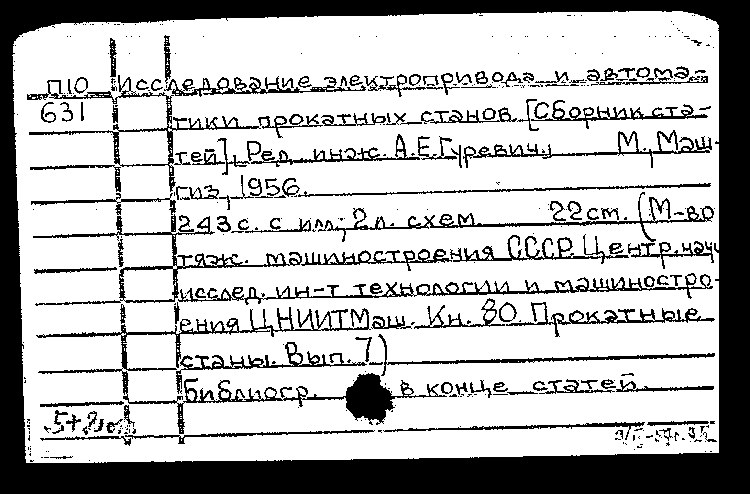 П10 Исследование электропривода и автома-
631 тики прокатных станов. [Сборник ста-
тей]. Ред. инж. А.Е.Гуревич. М., Маш-
гиз, 1956.
243 с. с илл.; 2 л. схем. 22 см. (М-во
тяж. машиностроения СССР. Центр. науч.
исслед. ин-т технологии и машиностро-
ения ЦНИИТМаш. Кн. 80. Прокатные
станы. Вып. 7)
Библиогр. в конце статей.